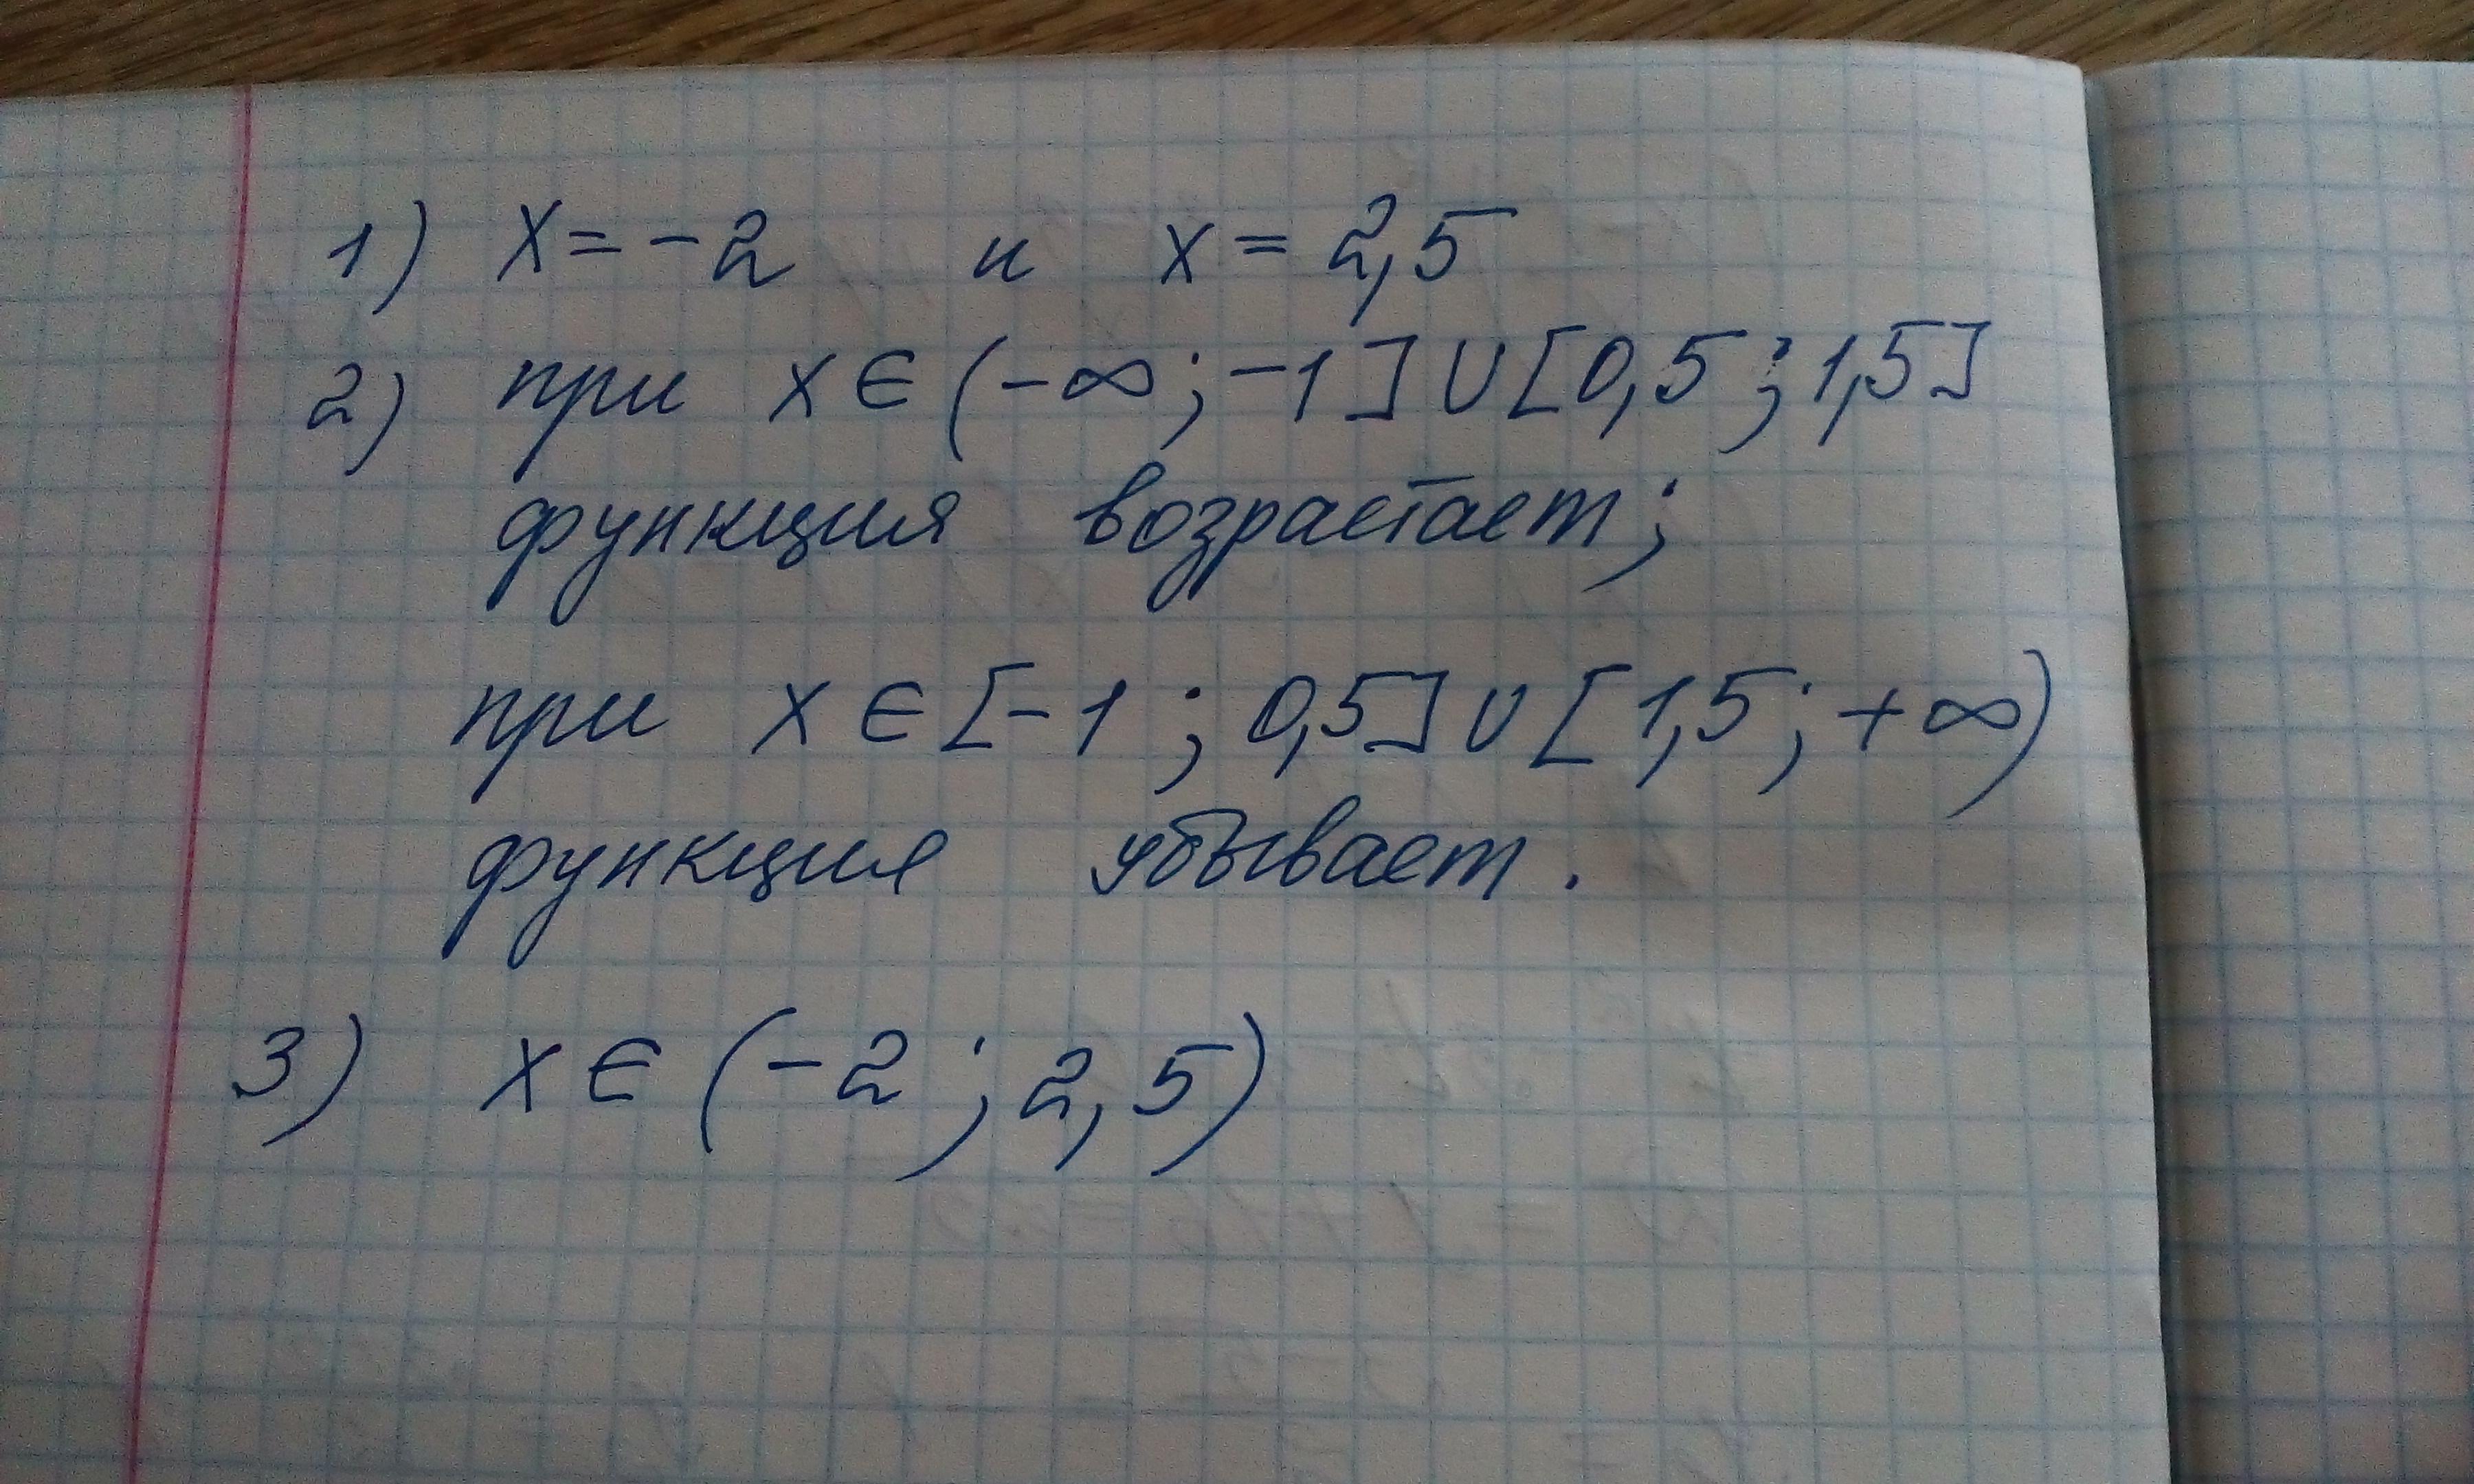 1) x = -2 и x = 2,5
2) при x ∈ (-∞; -1] ∪ [0,5; 1,5]
функция возрастает;
при x ∈ [-1; 0,5] ∪ [1,5; +∞)
функция убывает.
3) x ∈ (-2; 2,5)